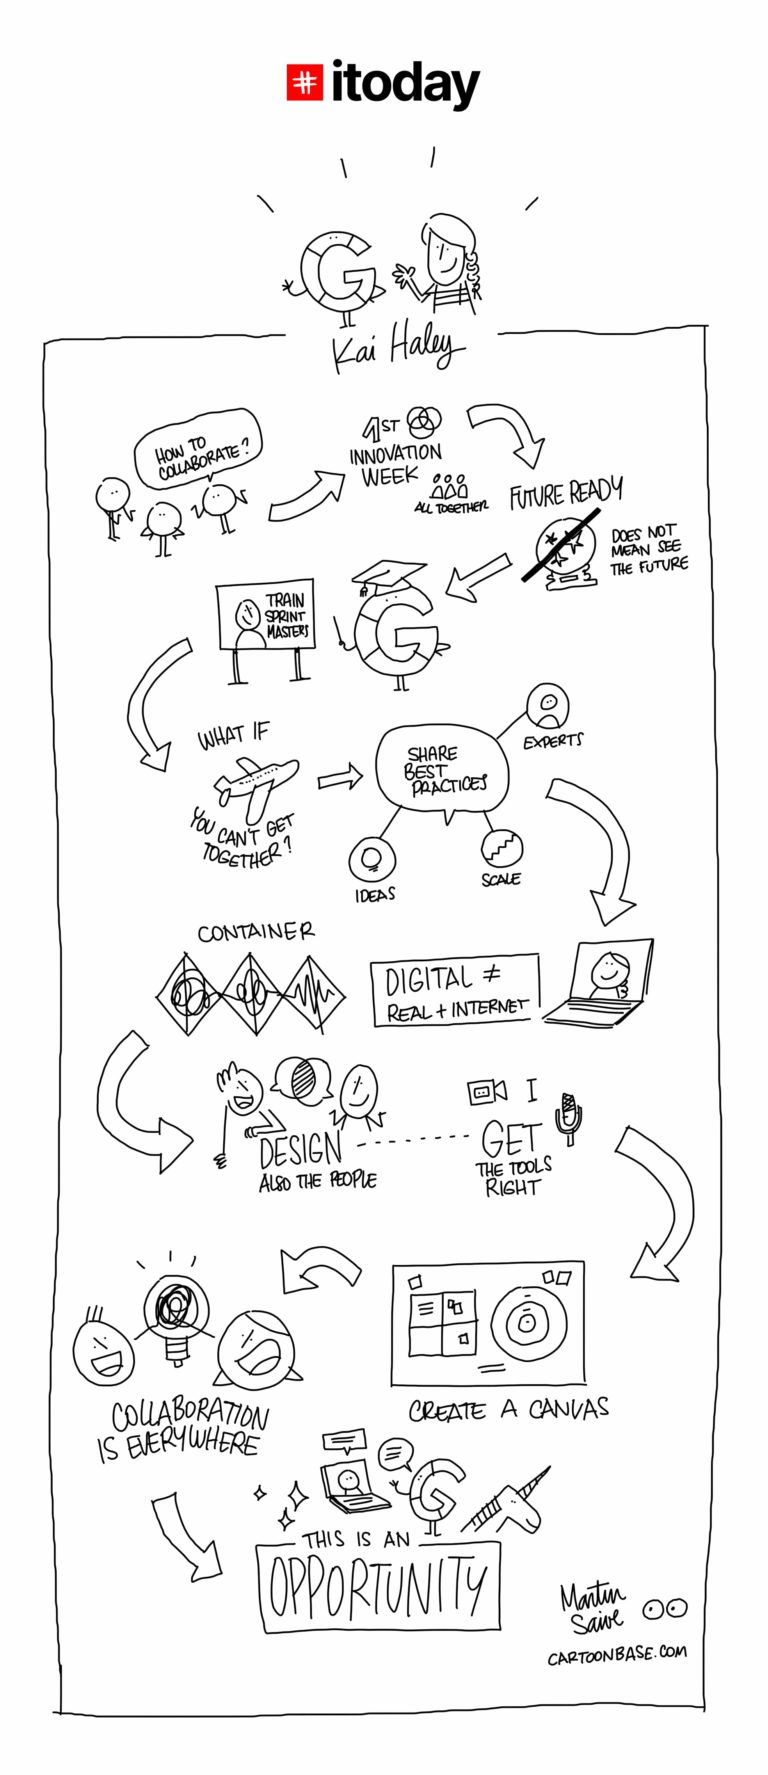 #itoday
G
Kai Haley
HOW TO
COLLABORATE?
1ST
INNOVATION
WEEK
ALL TOGETHER
FUTURE READY
DOES NOT
MEAN SEE
THE FUTURE
TRAIN
SPRINT
MASTERS
G
WHAT IF
YOU CAN'T GET
TOGETHER?
SHARE
BEST
PRACTICES
EXPERTS
IDEAS
SCALE
CONTAINER
DIGITAL ≠
REAL + INTERNET
DESIGN
ALSO THE PEOPLE
I
GET
THE TOOLS
RIGHT
CREATE A CANVAS
COLLABORATION
IS EVERYWHERE
G
THIS IS AN
OPPORTUNITY
Martin
Saive
CARTOONBASE.COM